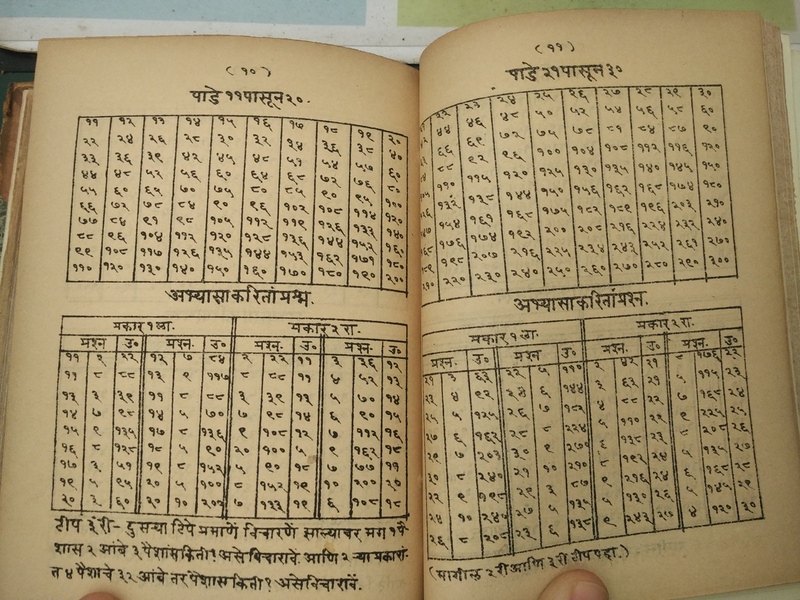 (१०)
पाढे ११ पासून २०.
११ १२ १३ १४ १५ १६ १७ १८ १९ २०
२२ २४ २६ २८ ३० ३२ ३४ ३६ ३८ ४०
३३ ३६ ३९ ४२ ४५ ४८ ५१ ५४ ५७ ६०
४४ ४८ ५२ ५६ ६० ६४ ६८ ७२ ७६ ८०
५५ ६० ६५ ७० ७५ ८० ८५ ९० ९५ १००
६६ ७२ ७८ ८४ ९० ९६ १०२ १०८ ११४ १२०
७७ ८४ ९१ ९८ १०५ ११२ ११९ १२६ १३३ १४०
८८ ९६ १०४ ११२ १२० १२८ १३६ १४४ १५२ १६०
९९ १०८ ११७ १२६ १३५ १४४ १५३ १६२ १७१ १८०
११० १२० १३० १४० १५० १६० १७० १८० १९० २००
अभ्यासाकरितां प्रश्न.
प्रकार १ ला. प्रकार २ रा.
प्रश्न. उ० प्रश्न. उ० प्रश्न. उ० प्रश्न. उ०
११ २ २२ १२ ७ ८४ २ २२ ११ ३ ३६ १२
११ ८ ८८ १३ ९ ११७ ८ ८८ ११ ४ ५२ १३
१३ ३ ३९ ११ ८ ८८ ३ ३९ १३ ५ ७० १४
१४ ७ ९८ १४ ५ ७० ७ ९८ १४ ६ ९० १५
१५ ९ १३५ १७ ८ १३६ ९ १०८ १२ ७ ११२ १६
१६ ८ १२८ १८ ५ ९० २० १०० ५ ९ १६२ १८
१७ ३ ५१ १९ ८ १५२ ५ ९० १८ ७ ७७ ११
१९ ५ ९५ २० ५ १०० ८ १५२ १९ ५ ९० १८
२० ३ ६० २० १० २०० ७ १३३ १९ ६ १०८ १८
टीप ३ री – दुसऱ्या टिपे प्रमाणें विचारणें साल्यावर मग १ पै-
शास २ आंबे ३ पैशांस किती? असे विचारावें. आणि २ ऱ्या प्रकारां-
त ४ पैशाचे ३२ आंबे तर पैशास किती? असे विचारावें.
(११)
पाढे २१ पासून ३०
२१ २२ २३ २४ २५ २६ २७ २८ २९ ३०
४४ ४६ ४८ ५० ५२ ५४ ५६ ५८ ६०
६६ ६९ ७२ ७५ ७८ ८१ ८४ ८७ ९०
८८ ९२ ९६ १०० १०४ १०८ ११२ ११६ १२०
११० ११५ १२० १२५ १३० १३५ १४० १४५ १५०
१३२ १३८ १४४ १५० १५६ १६२ १६८ १७४ १८०
१५४ १६१ १६८ १७५ १८२ १८९ १९६ २०३ २१०
१७६ १८४ १९२ २०० २०८ २१६ २२४ २३२ २४०
१९८ २०७ २१६ २२५ २३४ २४३ २५२ २६१ २७०
२१० २२० २३० २४० २५० २६० २७० २८० २९० ३००
अभ्यासाकरितां प्रश्न.
प्रकार १ ला. प्रकार २ रा.
प्रश्न. उ० प्रश्न. उ० प्रश्न. उ० प्रश्न. उ०
२१ ३ ६३ २२ ५ ११० २ ४२ २१ ८ १७६ २२
२३ ४ ९२ २४ ६ १४४ ३ ६३ २१ ५ ११५ २३
२५ ५ १२५ २६ ७ १८२ ४ ८८ २२ ७ १६८ २४
२७ ६ १६२ २८ ८ ५ ११० २२ ९ २२५ २५
२९ ७ २०३ ३० ९ ६ १३८ २३ ५ १३५ २७
३० ८ २४० २१ १० २१० ८ १९२ २४ ६ १६८ २८
२२ ९ १९८ २९ ३ ८७ ५ १३० २६ ५ १४५ २९
२४ १० २४० २७ ५ १३५ ९ २४३ २७ ४ १२० ३०
२६ ८ २०८
(मागील २ री आणि ३ री टीप पहा.)